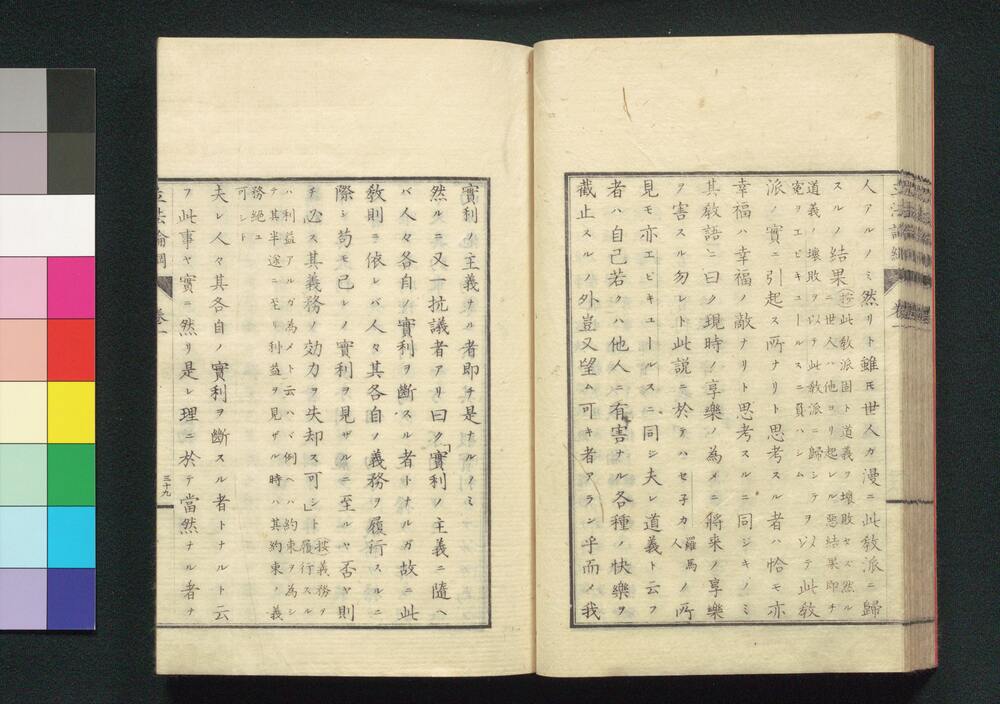 人アルノミ然リト雖モ世人カ漫ニ此教派ニ歸
スルノ結果ニ(按)此教派固ト道義ヲ壊敗セズ然ル
ニ世人ハ他ヨリ起レル惡結果即チ
道義ノ壊敗ヲ以テ此教派ニ歸シテヲ以テ此教
寃ヲエピキュールスニ負ハシム
派ノ實ニ引起ス所ナリト思考スル者ハ恰モ亦
幸福ハ幸福ノ敵ナリト思考スルニ同ジキノミ
其教語ニ曰ク現時ノ享樂ノ為メニ將来ノ享樂
ヲ害スル勿レト此説ニ於テハセ子カ羅馬ノ人所
見モ亦エピキュールスニ同ジ夫レ道義ト云フ
者ハ自己若クハ他人ニ有害ナル各種ノ快樂ヲ
截止スルノ外豈又望ム可キ者アランヤ而〆我
實利ノ主義ナル者即チ是ナルノミ
然ルニ又一抗議者アリ曰ク「實利ノ主義ニ隨ヘ
バ人々各自ノ實利ヲ斷スル者トナルガ故ニ此
教則ニ依レバ人々其各自ノ義務ヲ履行スルニ
際シ苟モ己レノ實利ヲ見ザルニ至ルヤ否ヤ則
チ必ス其義務ノ効力ヲ失却ス可シ」ト(按)義務ヲ
履行スル
ハ利益アルガ為メト云ハバ例ヘハ約束ヲ為シ
テ其半途ニ至リ利益ヲ見ザル時ハ其約束ノ義
務絶ユ
可シト
夫レ人々其各自ノ實利ヲ斷スル者トナルト云
フ此事ヤ實ニ然リ是レ理ニ於テ當然ナル者ナ
立法論綱 卷一
三十九